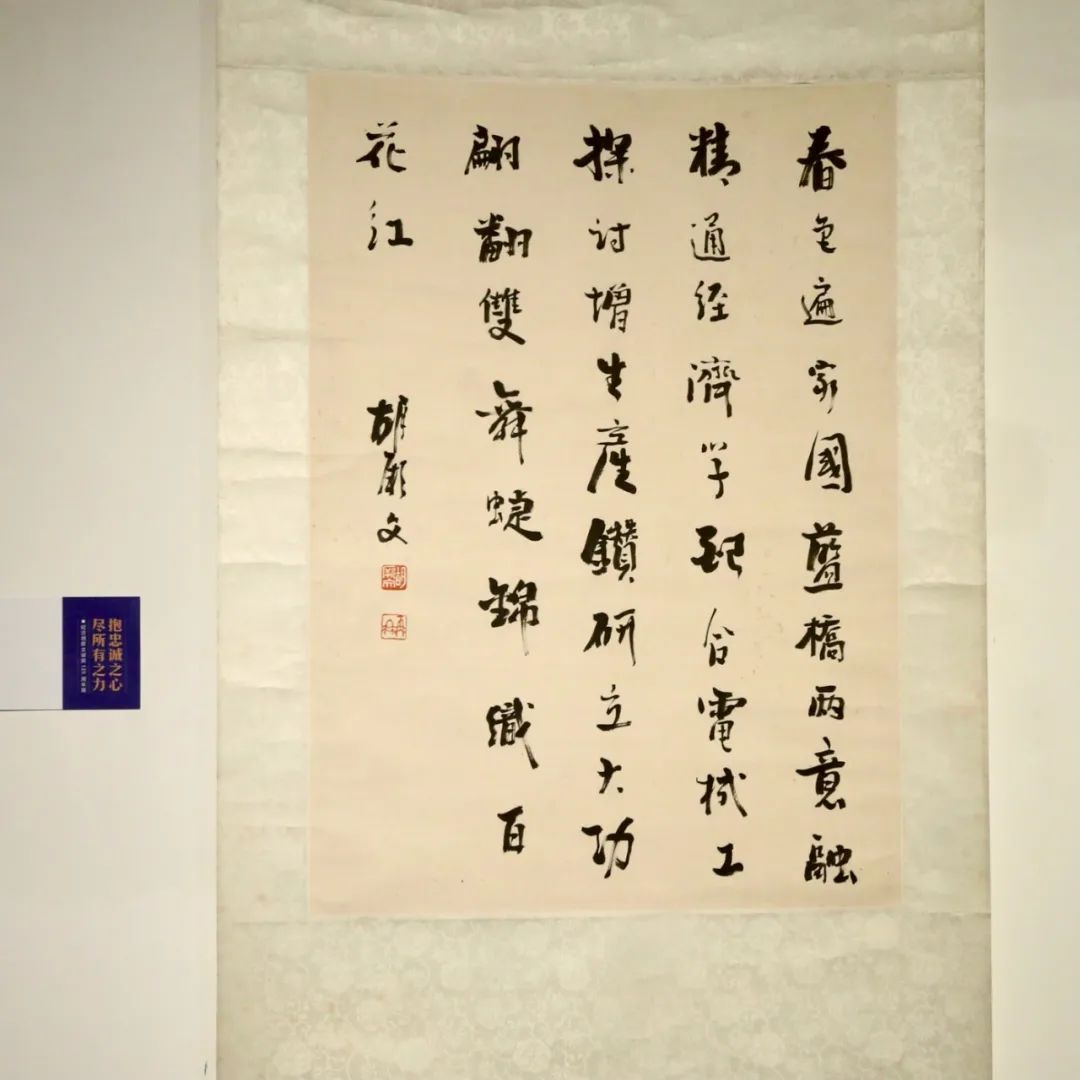 春色遍家國藍橋兩意融
精通经濟学配合電械工
探讨增生產鑽研立大功
翩翻雙舞蜨錦織百
花红
胡厥文
抱忠诚之心
尽所有之力